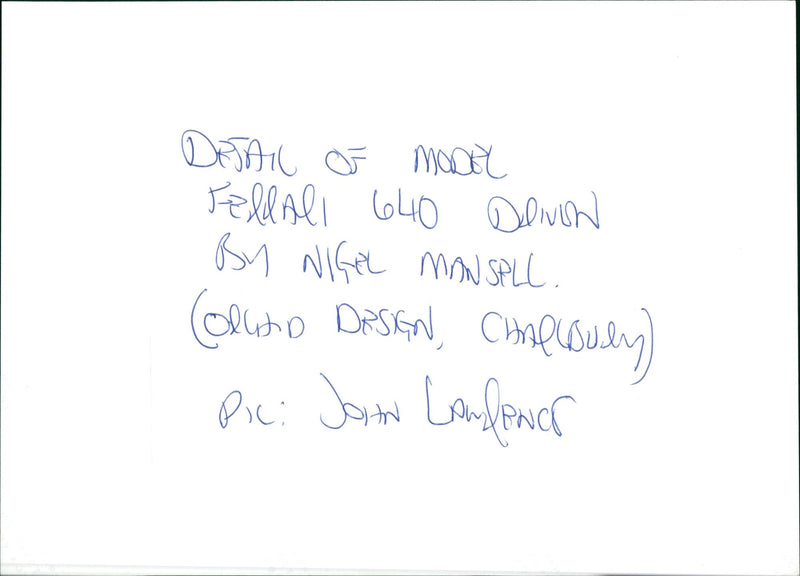 DETAIL OF MODEL
FERRARI 640 DRIVEN
BY NIGEL MANSELL.
(ORCHID DESIGN, CHARLBURY)
PIC: JOHN LAWRENCE